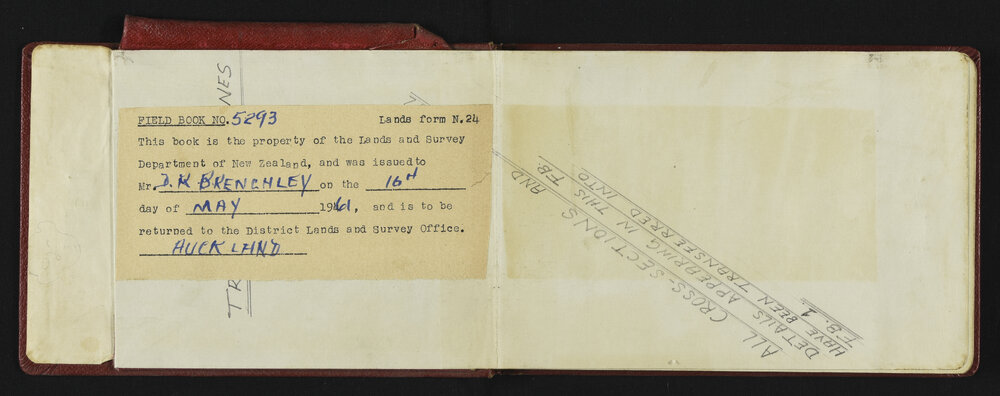 FIELD BOOK NO. 5293 Lands form N.24
This book is the property of the Lands and Survey
Department of New Zealand, and was issued to
Mr. D.K BRENCHLEY on the 16th
day of MAY 1961, and is to be
returned to the District Lands and Survey Office.
AUCKLAND
ALL CROSS-SECTIONS AND
DETAILS APPEARING IN THIS F.B.
HAVE BEEN TRANSFERRED INTO
F.B. 1